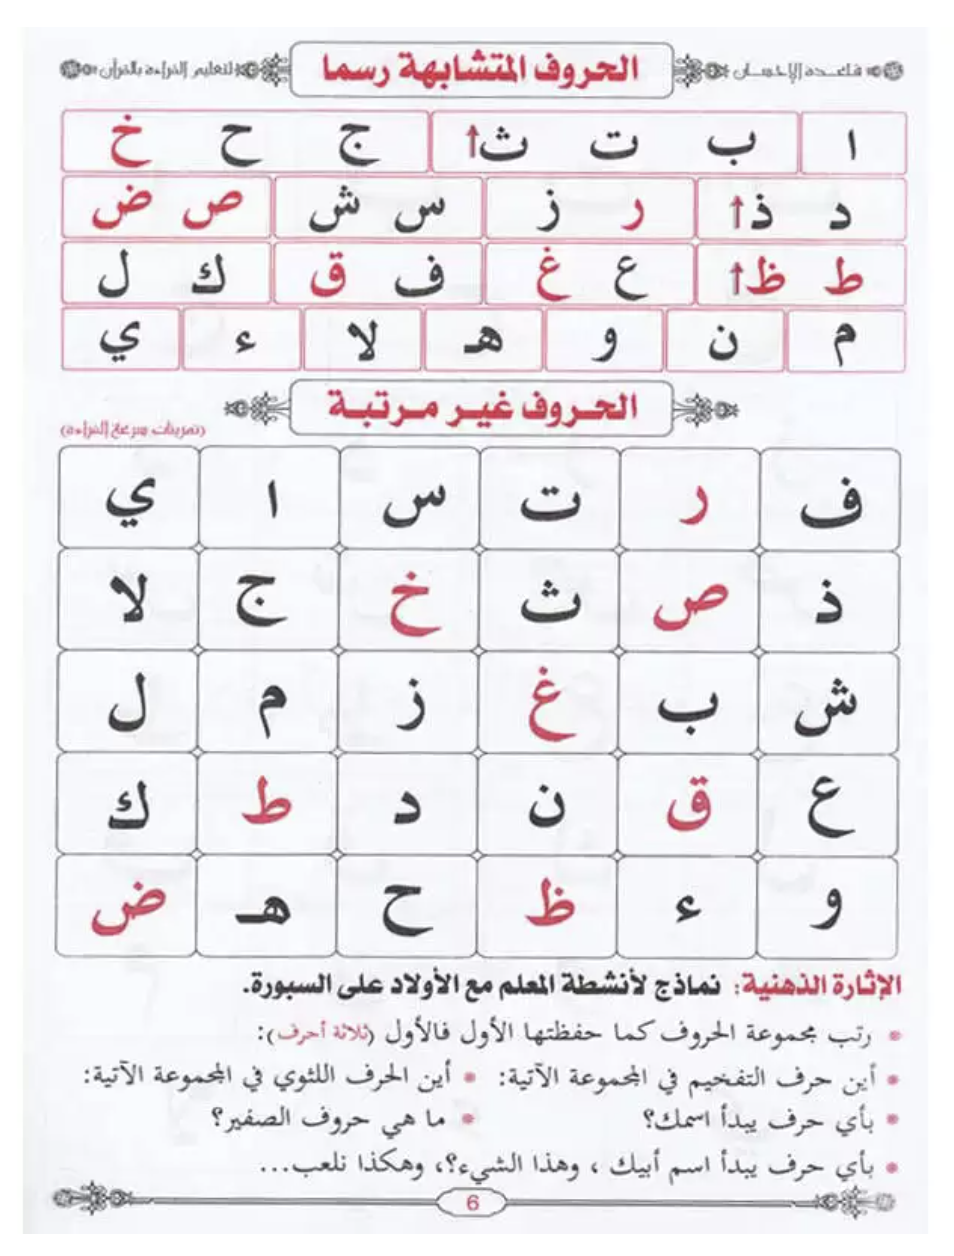 قاعدة الإحسان
الحروف المتشابهة رسما
لتعليم القراءة بالقرآن
ا ب ت ث ج ح خ
د ذ ر ز س ش ص ض
ط ظ ع غ ف ق ك ل
م ن و هـ لا ء ي
الحروف غير مرتبة
(تمرينات سرعة القراءة)
ف ر ت س ا ي
ذ ص ث خ ج لا
ش ب غ ز م ل
ع ق ن د ط ك
و ء ظ ح هـ ض
الإثارة الذهنية: نماذج لأنشطة المعلم مع الأولاد على السبورة.
رتب مجموعة الحروف كما حفظتها الأول فالأول (ثلاثة أحرف):
أين حرف التفخيم في المجموعة الآتية: أين الحرف اللثوي في المجموعة الآتية:
بأي حرف يبدأ اسمك؟ ما هي حروف الصفير؟
بأي حرف يبدأ اسم أبيك ، وهذا الشيء؟، وهكذا نلعب...
6